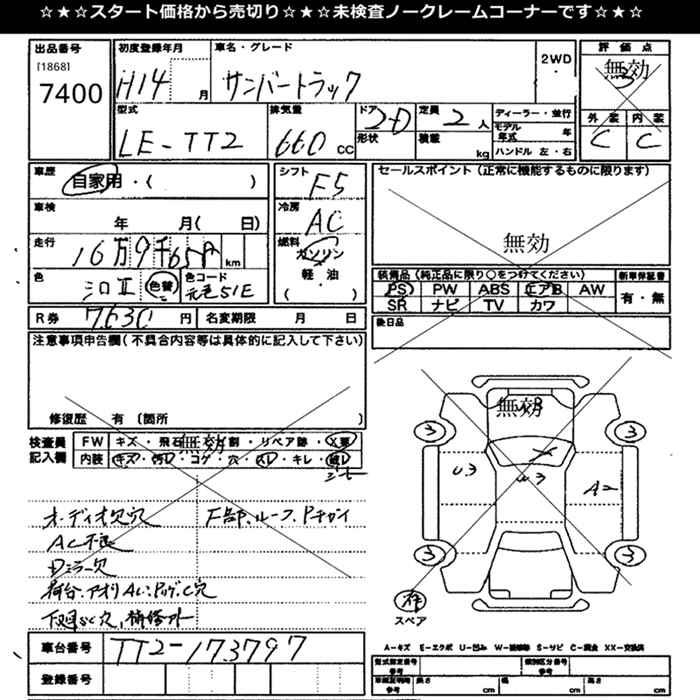 ☆★☆★スタート価格から売切り☆★☆★未検査ノークレームコーナーです☆★☆★
出品番号
[1868]
7400
初度登録年月
H14 月
車名・グレード
サンバートラック
2WD
評価点
無効
3
外装 内装
C C
型式
LE-TT2
排気量
660 CC
ドア 形状
2-D
定員 2 人
積載 kg
ディーラー・並行
モデル年式 年
ハンドル 左・右
車歴
自家用・( )
シフト
F5
セールスポイント(正常に機能するものに限ります)
無効
車検
年 月( 日)
冷房
AC
走行
16万9千 km
燃料
ガソリン
軽・油
( )
色
シロII 色替
色コード
元色51E
装備品(純品品に限り○をつけてください)
PS PW ABS エアB AW
SR ナビ TV カワ
新車保証書
有・無
R券 7630 円 名変期限 月 日
後日品
注意事項申告欄(不具合内容等は具体的に記入して下さい)
修復歴 有 〔箇所
無効
検査員
記入欄
FW キズ・飛石・割・リペア跡・X要
内装 キズ・汚レ・コゲ・穴・スレ・キレ・破レ
シート
無効
3 3
U3 U3 A2
3 3
スペア
オーディオ欠穴
F部、ルーフ、Pチガイ
AC不良
Dミラー欠
荷台、アオリAC、
車台番号 TT2-173797
登録番号
A-キズ E-エクボ U-凹み W-補修跡 S-サビ C-腐食 XX-交換済
型式指定番号 参考
類別区分番号 参考
車両実測 参考
長さ cm
幅 cm
高さ cm